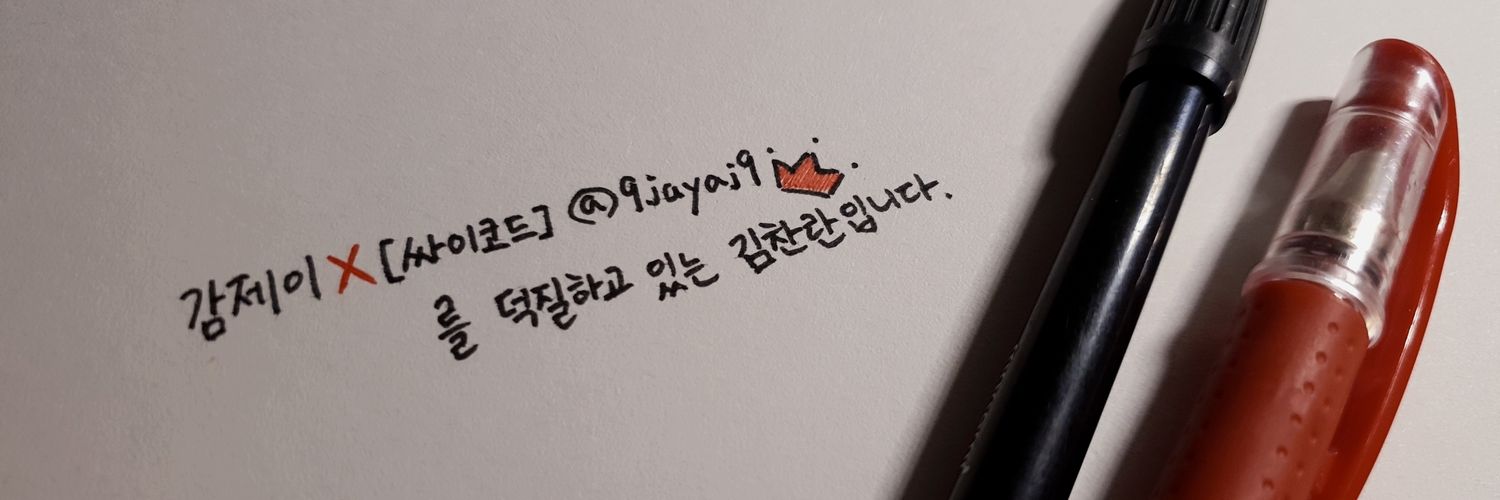 감제이X[싸이코드] @9jayaj9
를 덕질하고 있는 김찬란입니다.